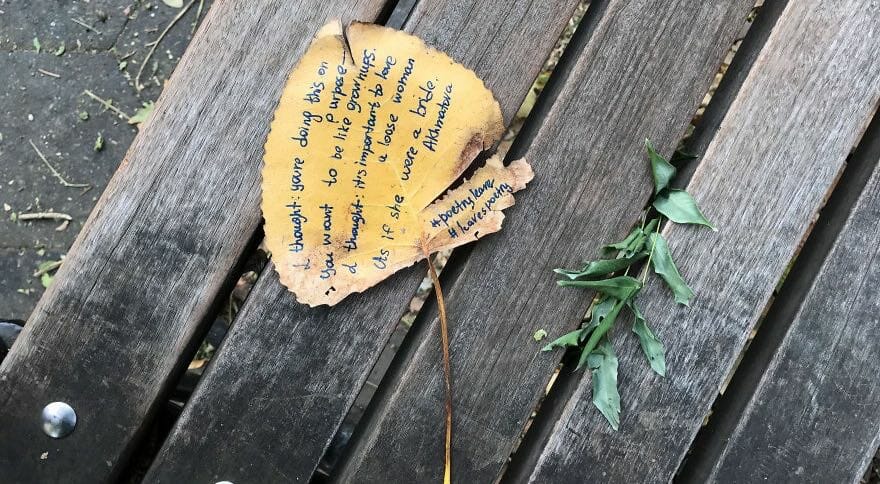 I thought: you're doing this on
purpose—
You want to be like grownups.
I thought: it's important to love
a loose woman
As if she were a bride.
Akhmatova
#poetryleave
#leavespoetry